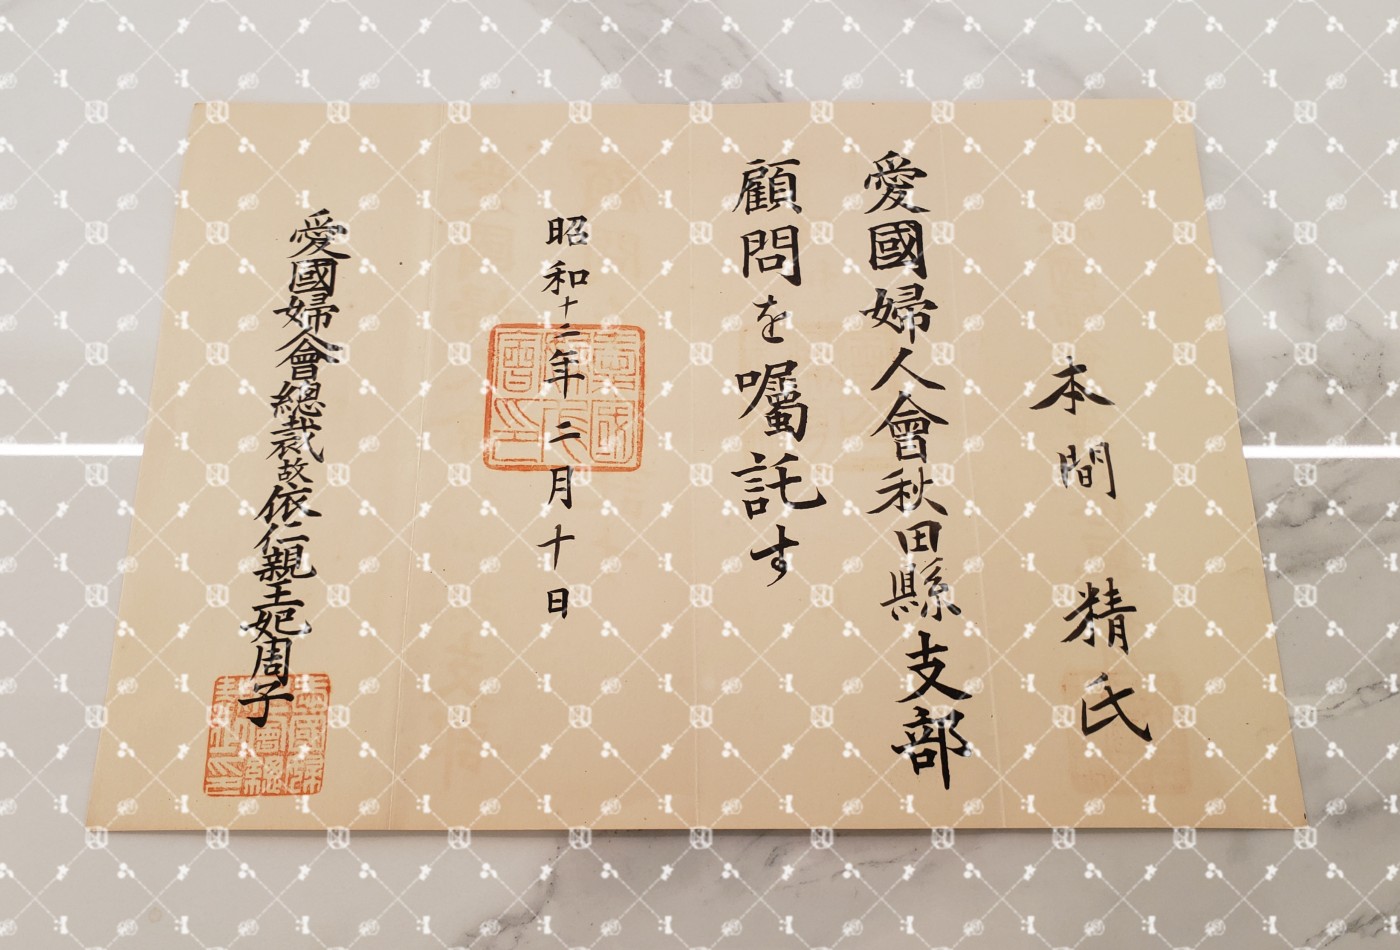 本間精氏
愛國婦人會秋田縣支部
顧問を囑託す
昭和十二年二月十日
愛國婦人會總裁故依仁親王妃周子